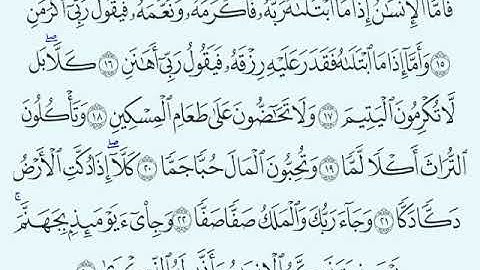 فَأَمَّا ٱلۡإِنسَٰنُ إِذَا مَا ٱبۡتَلَىٰهُ رَبُّهُۥ فَأَكۡرَمَهُۥ وَنَعَّمَهُۥ فَيَقُولُ رَبِّيٓ أَكۡرَمَنِ
١٥ وَأَمَّآ إِذَا مَا ٱبۡتَلَىٰهُ فَقَدَرَ عَلَيۡهِ رِزۡقَهُۥ فَيَقُولُ رَبِّيٓ أَهَٰنَنِ ١٦ كَلَّاۖ بَل
لَّا تُكۡرِمُونَ ٱلۡيَتِيمَ ١٧ وَلَا تَحَٰٓضُّونَ عَلَىٰ طَعَامِ ٱلۡمِسۡكِينِ ١٨ وَتَأۡكُلُونَ
ٱلتُّرَاثَ أَكۡلٗا لَّمّٗا ١٩ وَتُحِبُّونَ ٱلۡمَالَ حُبّٗا جَمّٗا ٢٠ كَلَّآۖ إِذَا دُكَّتِ ٱلۡأَرۡضُ
دَكّٗا دَكّٗا ٢١ وَجَآءَ رَبُّكَ وَٱلۡمَلَكُ صَفّٗا صَفّٗا ٢٢ وَجِاْيٓءَ يَوۡمَئِذِۭ بِجَهَنَّمَۚ